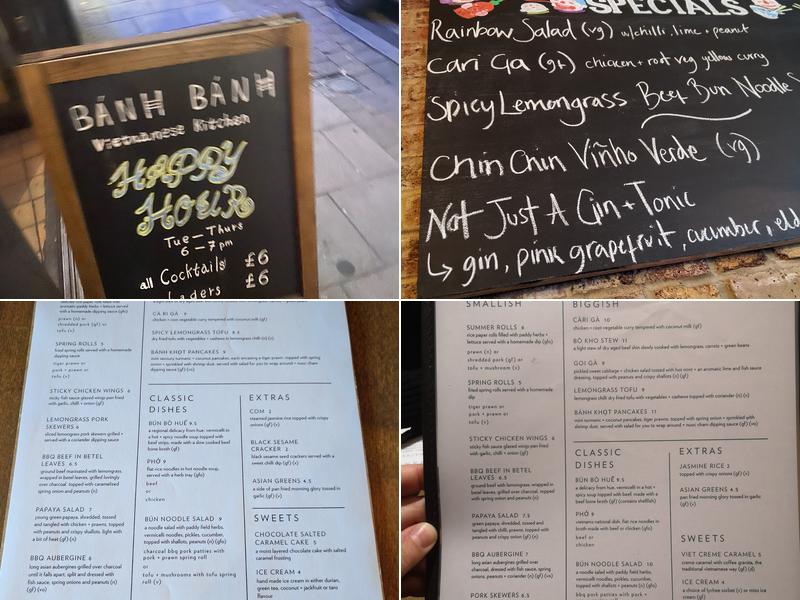 BÁNH BÁNH
Vietnamese Kitchen
HAPPY
HOUR
Tue - Thurs
6 - 7 pm
all Cocktails £6
£6
SPECIALS
Rainbow Salad (vg) w/chilli, lime + peanut
Cari Ga (gf) chicken + root veg yellow curry
Spicy Lemongrass Beef Bun Noodle S
Chin Chin Viñho Verde (vg)
Not Just A Gin + Tonic
↳ gin, pink grapefruit, cucumber, eld
aromatic paddy herbs + lettuce served
with a homemade dipping sauce (gfo)
prawn (n) or
shredded pork (gf) or
tofu (v)
SPRING ROLLS 5
fried spring rolls served with a homemade
dipping sauce
tiger prawn or
pork + prawn or
tofu (v)
STICKY CHICKEN WINGS 6
sticky fish sauce glazed wings pan fried
with garlic, chilli + onion (gf)
LEMONGRASS PORK
SKEWERS 6
sliced lemongrass pork skewers grilled +
served with a coriander dipping sauce
BBQ BEEF IN BETEL
LEAVES 6.5
ground beef marinated with lemongrass,
wrapped in betel leaves, grilled lovingly
over charcoal, topped with caramelized
spring onions and peanuts (n)
PAPAYA SALAD 7
young green papaya, shredded, tossed
and tangled with chicken + prawns, topped
with prawn crisps and peanuts, light with
a bit of heat (gf) (n)
BBQ AUBERGINE 6
long asian aubergines grilled over charcoal
until it falls apart, split and dressed with
fish sauce, spring onions and peanuts (n)
(vo)
CÀ RI GÀ 9
chicken + root vegetable curry tempered with coconut milk (gf)
SPICY LEMONGRASS TOFU 8.5
dry fried tofu with vegetables + cashews in lemongrass chilli (n) (gf)
BÁNH KHOT PANCAKES 9
mini savoury turmeric + coconut pancakes, each encasing a tiger prawn. topped with spring
onion + sprinkled with shrimp dust. served with salad for you to wrap around + nuoc cham
dipping sauce (gf) (vo)
CLASSIC
DISHES
BÚN BÒ HUẾ 9.5
a regional delicacy from hue. vermicelli in
a hot + spicy noodle soup topped with
beef strips, made with a slow cooked beef
bone broth (gf)
PHỞ 9
flat rice noodles in hot noodle soup,
served with a herb tray (gfo)
beef
or
chicken
BÚN NOODLE SALAD 9
a noodle salad with paddy field herbs,
vermicelli noodles, pickles, cucumber,
topped with shallots, peanuts (n) (gfo)
charcoal bbq pork patties with
pork + prawn spring roll
or
tofu + mushrooms with tofu spring
roll (v)
EXTRAS
COM 2
steamed jasmine rice topped with crispy
onions (gf) (vo)
BLACK SESAME
CRACKER 2
black sesame seed crackers served with a
sweet chilli dip (gf) (v)
ASIAN GREENS 4.5
a side of pan fried morning glory tossed in
garlic (gf) (v)
SWEETS
CHOCOLATE SALTED
CARAMEL CAKE 5
a moist layered chocolate cake with salted
caramel frosting
ICE CREAM 4
hand made ice cream in either durian,
green tea, coconut + jackfruit or taro
flavour
SMALLISH
SUMMER ROLLS 6
rice paper rolls filled with paddy herbs +
lettuce served with a homemade dipping
sauce
prawn (n) or
shredded pork (gf) or
tofu + mushroom (v)
SPRING ROLLS 5
fried spring rolls served with a homemade
dip
tiger prawn or
pork + prawn or
tofu (v)
STICKY CHICKEN WINGS 6
sticky fish sauce glazed wings pan fried
with garlic, chilli + onion (gf)
BBQ BEEF IN BETEL
LEAVES 6.5
ground beef with lemongrass, wrapped in
betel leaves, grilled over charcoal, topped
with spring onions and peanuts (n)
PAPAYA SALAD 7.5
green papaya, shredded, tossed and
tangled with chilli, prawns, topped with
prawn crisps and peanuts (gf) (n)
BBQ AUBERGINE 7
long asian aubergines grilled over
charcoal, split + dressed with fish sauce,
spring onions, peanuts + coriander (n) (gf) (vo)
PORK SKEWERS 6.5
BIGGISH
CÀRI GÀ 10
chicken + root vegetable curry tempered with coconut milk (gf)
BÒ KHO STEW 11
a light stew of dry aged beef shin slowly cooked with lemongrass, carrots + green beans
GOI GÀ 9
pickled sweet cabbage + chicken salad tossed with hot mint + an aromatic lime and fish sauce
dressing, topped with peanuts and crispy shallots (n) (gf)
LEMONGRASS TOFU 9
lemongrass chilli dry fried tofu with vegetables + cashews topped with coriander (n) (v)
BÁNH KHOT PANCAKES 11
CLASSIC
DISHES
BÚN BÒ HUẾ 9.5
a delicacy from hue. vermicelli in a hot +
spicy noodle soup topped with beef. made with a
beef bone broth (gf) (contains shellfish)
PHỞ 9
vietnams national dish. flat rice noodles in
broth made with beef or chicken (gfo)
beef or
chicken
BÚN NOODLE SALAD 10
a noodle salad with paddy field herbs,
vermicelli noodles, pickles, cucumber,
topped with shallots, peanuts (n) (gfo)
bbq pork patties with pork +
EXTRAS
JASMINE RICE 2
topped with crispy onions (gf) (vo)
ASIAN GREENS 4.5
pan fried morning glory tossed in garlic (gf)
(v)
SWEETS
VIET CREME CARAMEL 5
creme caramel with coffee granita, the
traditional vietnamese way (gf) (d)
ICE CREAM 4
a choice of lychee sorbet (v) or miso ice
cream (gf)